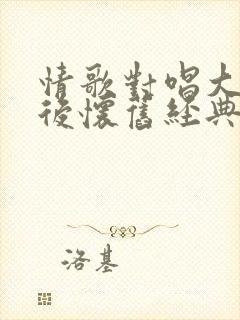 情歌對唱大
後懷舊經典
洛基